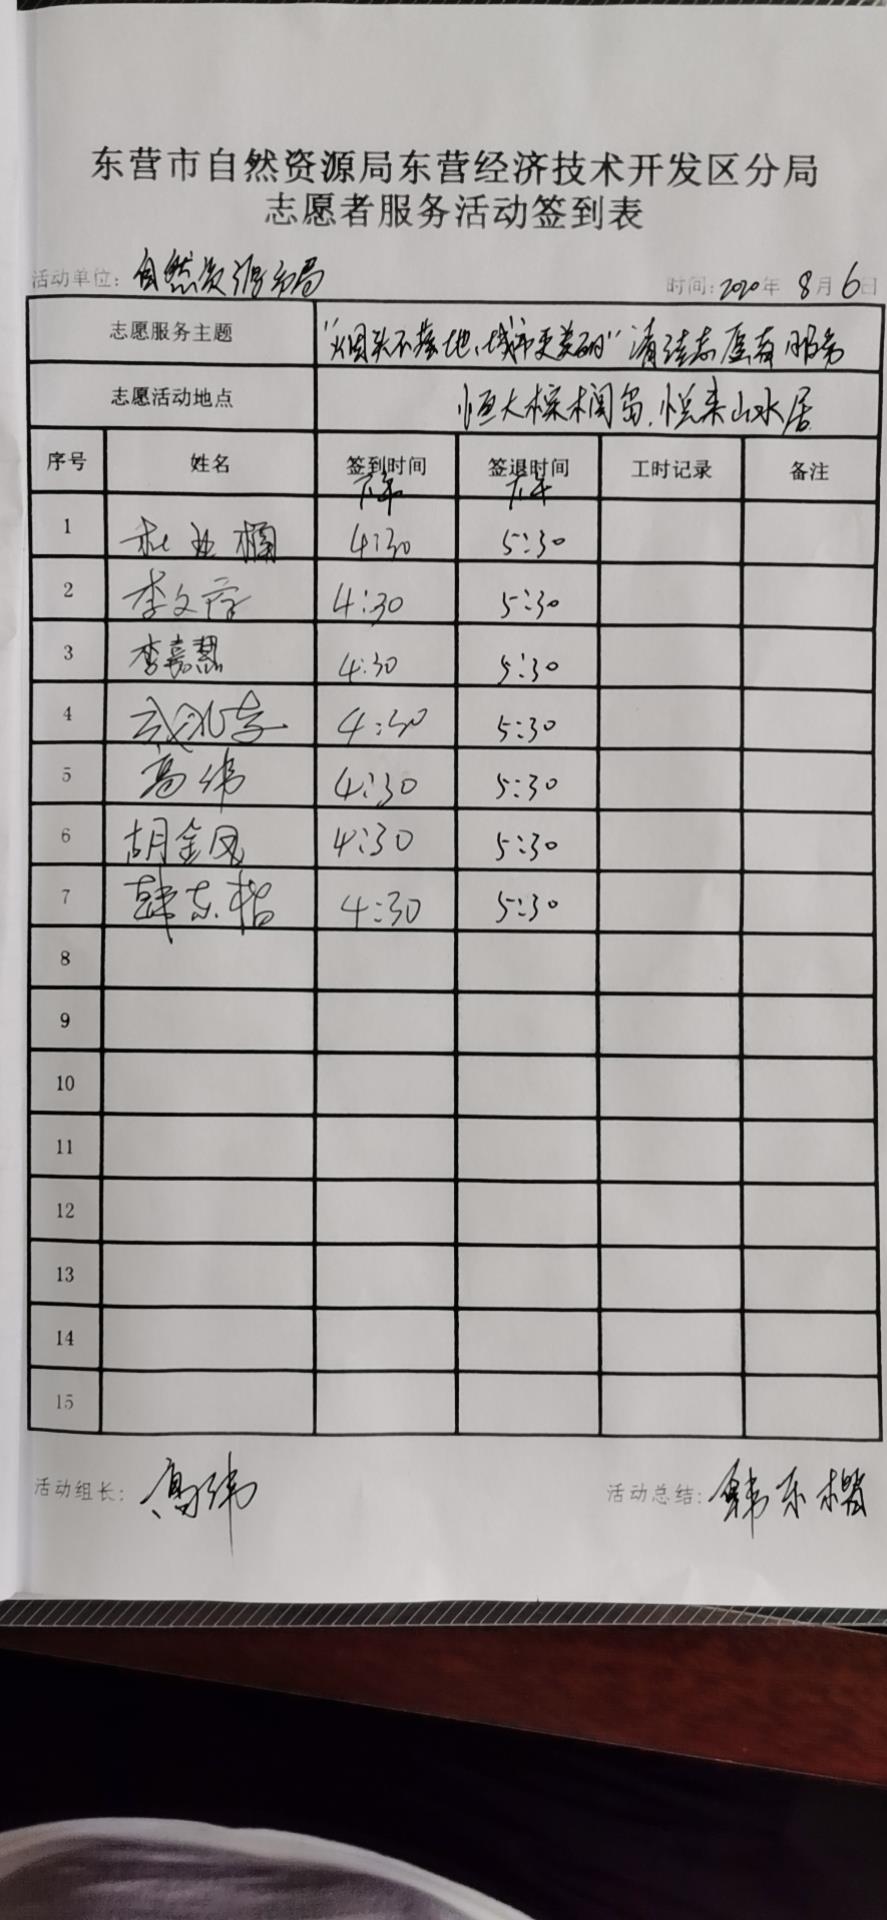 东营市自然资源局东营经济技术开发区分局
志愿者服务活动签到表
活动单位：自然资源分局 时间：2020年 8月6日
志愿服务主题 “烟头不落地、城市更美丽”清洁志愿者服务
志愿活动地点 恒大棕榈岛、悦来山水居
序号 姓名 签到时间 签退时间 工时记录 备注
下午 下午
1 杜 4:30 5:30
2 李文 4:30 5:30
3 李嘉慧 4:30 5:30
4 4:30 5:30
5 高伟 4:30 5:30
6 胡金凤 4:30 5:30
7 韩东楷 4:30 5:30
8
9
10
11
12
13
14
15
活动组长：高伟 活动总结：韩东楷